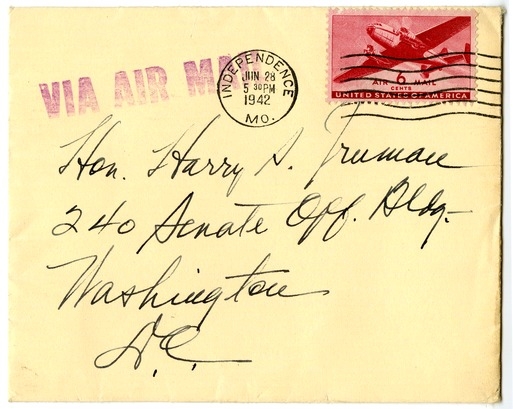 VIA AIR MAIL
INDEPENDENCE
JUN 28
5 30 PM
1942
MO.
AIR MAIL
6
CENTS
UNITED STATES OF AMERICA
Hon. Harry S. Truman
240 Senate Off. Bldg.
Washington
D.C.